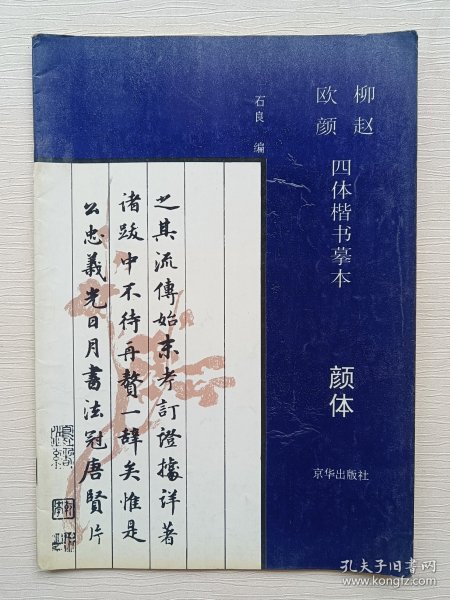 欧 柳
颜 赵
四体楷书摹本
颜体
石良 编
京华出版社
之其流傳始末考訂證據詳著
諸跋中不待再贅一辭矣惟是
公忠義光日月書法冠唐賢片
孔夫子旧书网
www.kongfz.com